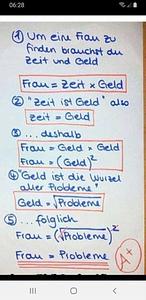 06:28
① Um eine Frau zu
finden brauchst du
Zeit und Geld
Frau = Zeit × Geld
② "Zeit ist Geld" also
Zeit = Geld
③ ... deshalb
Frau = Geld × Geld
Frau = (Geld)²
④ "Geld ist die Wurzel
aller Probleme"
Geld = √Probleme
⑤ ... folglich
Frau = (√Probleme)²
Frau = Probleme
A+